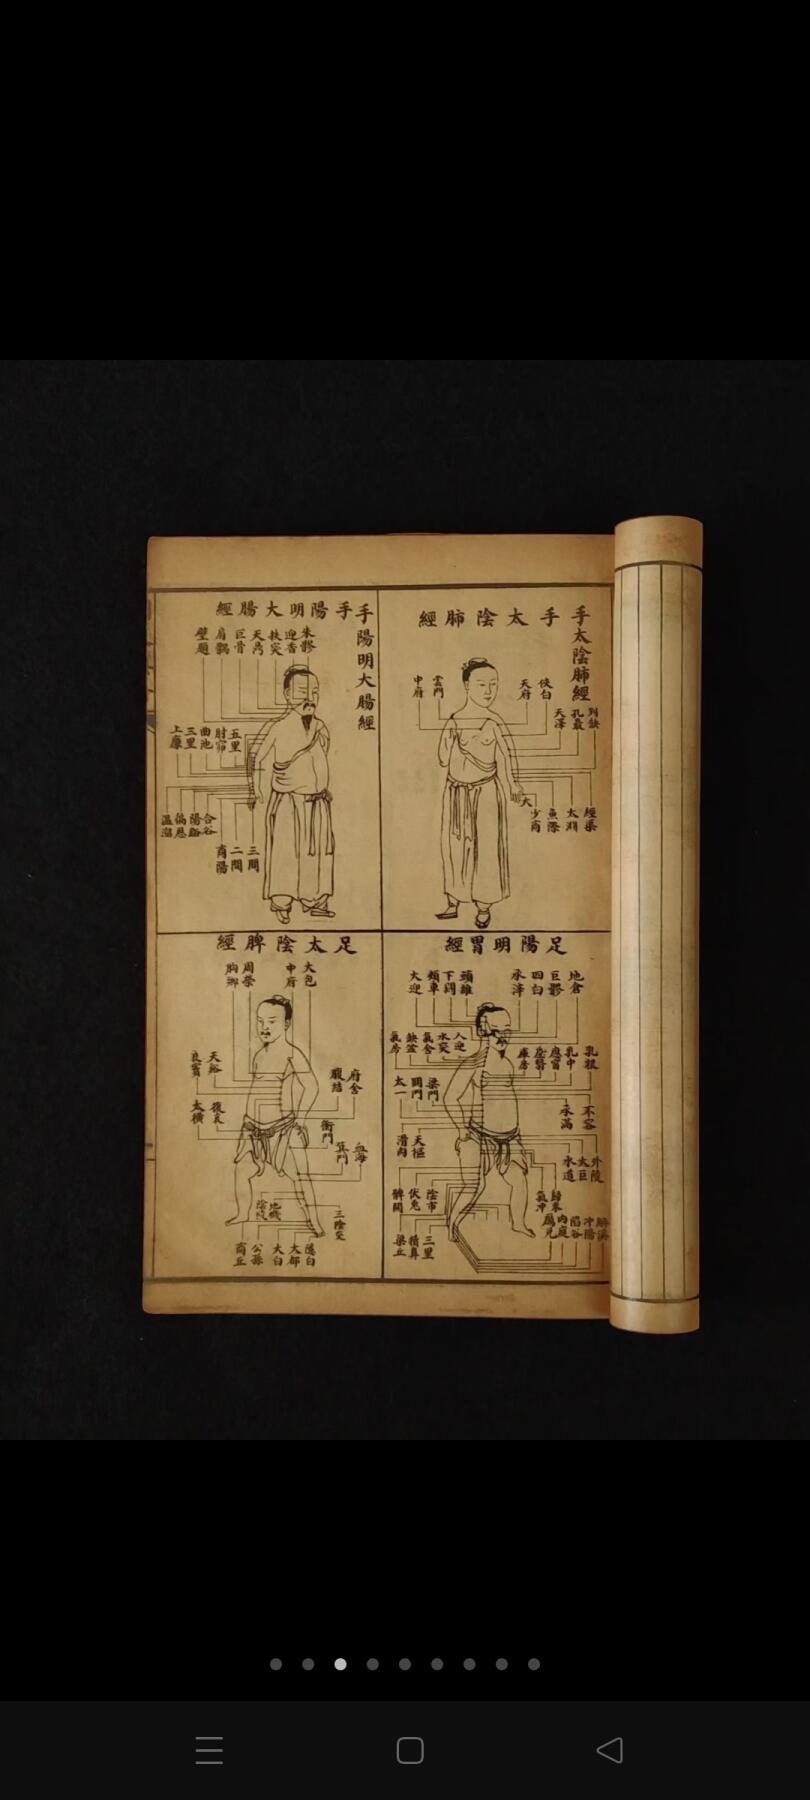 手太陰肺經
手太陰肺經
中府
雲門
天府
俠白
天澤
孔最
列缺
大
少商
魚際
太淵
經渠
手陽明大腸經
手陽明大腸經
肩髃
巨骨
扶突
迎香
上廉
三里
曲池
肘窌
五里
溫溜
偏歷
陽谿
合谷
商陽
二間
三間
足陽明胃經
大迎
頰車
下關
頭維
承泣
四白
巨髎
地倉
氣房
缺盆
氣舍
水突
人迎
庫房
膺窗
乳中
乳根
太一
關門
梁門
承滿
不容
滑肉
天樞
水道
太巨
外陵
髀關
伏兔
陰市
氣冲
歸來
梁丘
犢鼻
三里
厲兌
內庭
陷谷
冲陽
解溪
足太陰脾經
胸鄉
周榮
中府
大包
食竇
天谿
腹結
府舍
太橫
腹哀
衝門
箕門
血海
陰陵
地機
三陰交
商丘
公孫
大白
大都
隱白